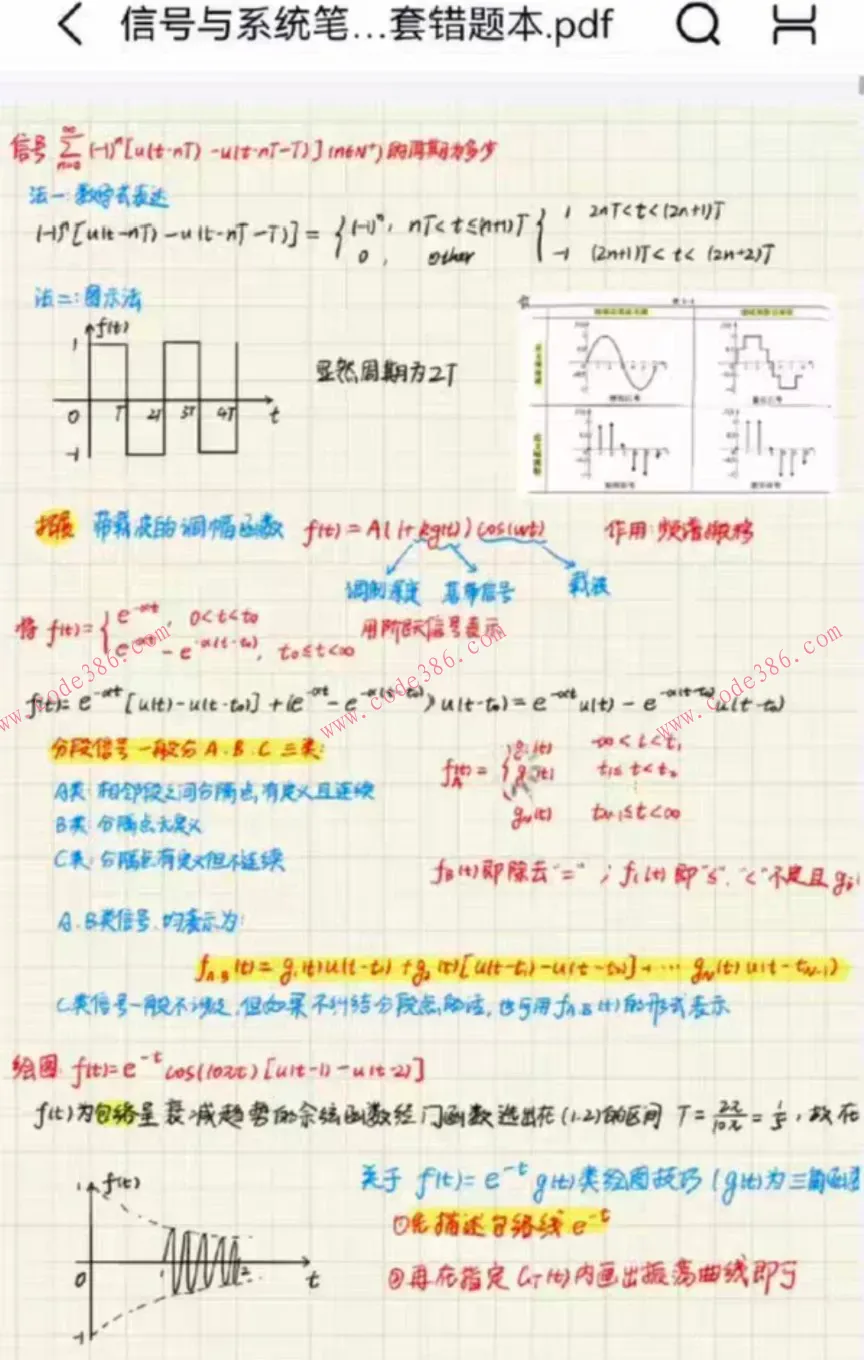 信号与系统笔...套错题本.pdf
信号 ∑_{n=0}^{∞} (-1)^n [u(t-nT) -u(t-nT-T)] (n∈N⁺) 的周期为多少
法一:数学式表达
(-1)^n [u(t-nT) -u(t-nT-T)] = { (-1)^n, nT<t≤(n+1)T { 1 2nT<t<(2n+1)T
0, other -1 (2n+1)T<t<(2n+2)T
法二:图示法
f(t)
1
显然周期为2T
0 T 2T 3T 4T t
-1
拓展 带载波的调幅函数 f(t)=A(1+kg(t))cos(wt) 作用:频谱搬移
调制深度 基带信号 载波
将 f(t)= { e^{-αt}, 0<t<t₀
e^{-αt} - e^{-α(t-t₀)}, t₀≤t<∞ 用阶跃信号表示
f(t)= e^{-αt} [u(t)-u(t-t₀)] + (e^{-αt} - e^{-α(t-t₀)}) u(t-t₀) = e^{-αt}u(t) - e^{-α(t-t₀)}u(t-t₀)
www.code386.com www.code386.com www.code386.com
分段信号一般分A.B.C三类:
A类:相邻段之间分隔点,有定义且连续
B类:分隔点无定义
C类:分隔点有定义但不连续
f_A(t) = { g₁(t) -∞<t<t₁
g₂(t) t₁≤t<t₂
g_N(t) t_{N-1}≤t<∞
f_B(t)即除去"=" ; f_C(t)即"≤"."<"不定且g
A.B类信号,均表示为:
f_{A.B}(t)= g₁(t)u(t-t₁) +g₂(t)[u(t-t₁)-u(t-t₂)]+ … g_N(t)u(t-t_{N-1})
C类信号一般不涉及,但如果不纠结分段点的话,也可用f_{A.B}(t)的形式表示
绘图 f(t)=e^{-t} cos(10πt)[u(t-1)-u(t-2)]
f(t)为包络呈衰减趋势的余弦函数经门函数选出在(1.2)的区间 T=2π/10π=1/5,故在
1 f(t)
0 1 2 t
-1
关于 f(t)=e^{-t} g(t)类绘图技巧 (g(t)为三角函
①先描述包络线e^{-t}
②再在指定G_T(t)内画出振荡曲线即可